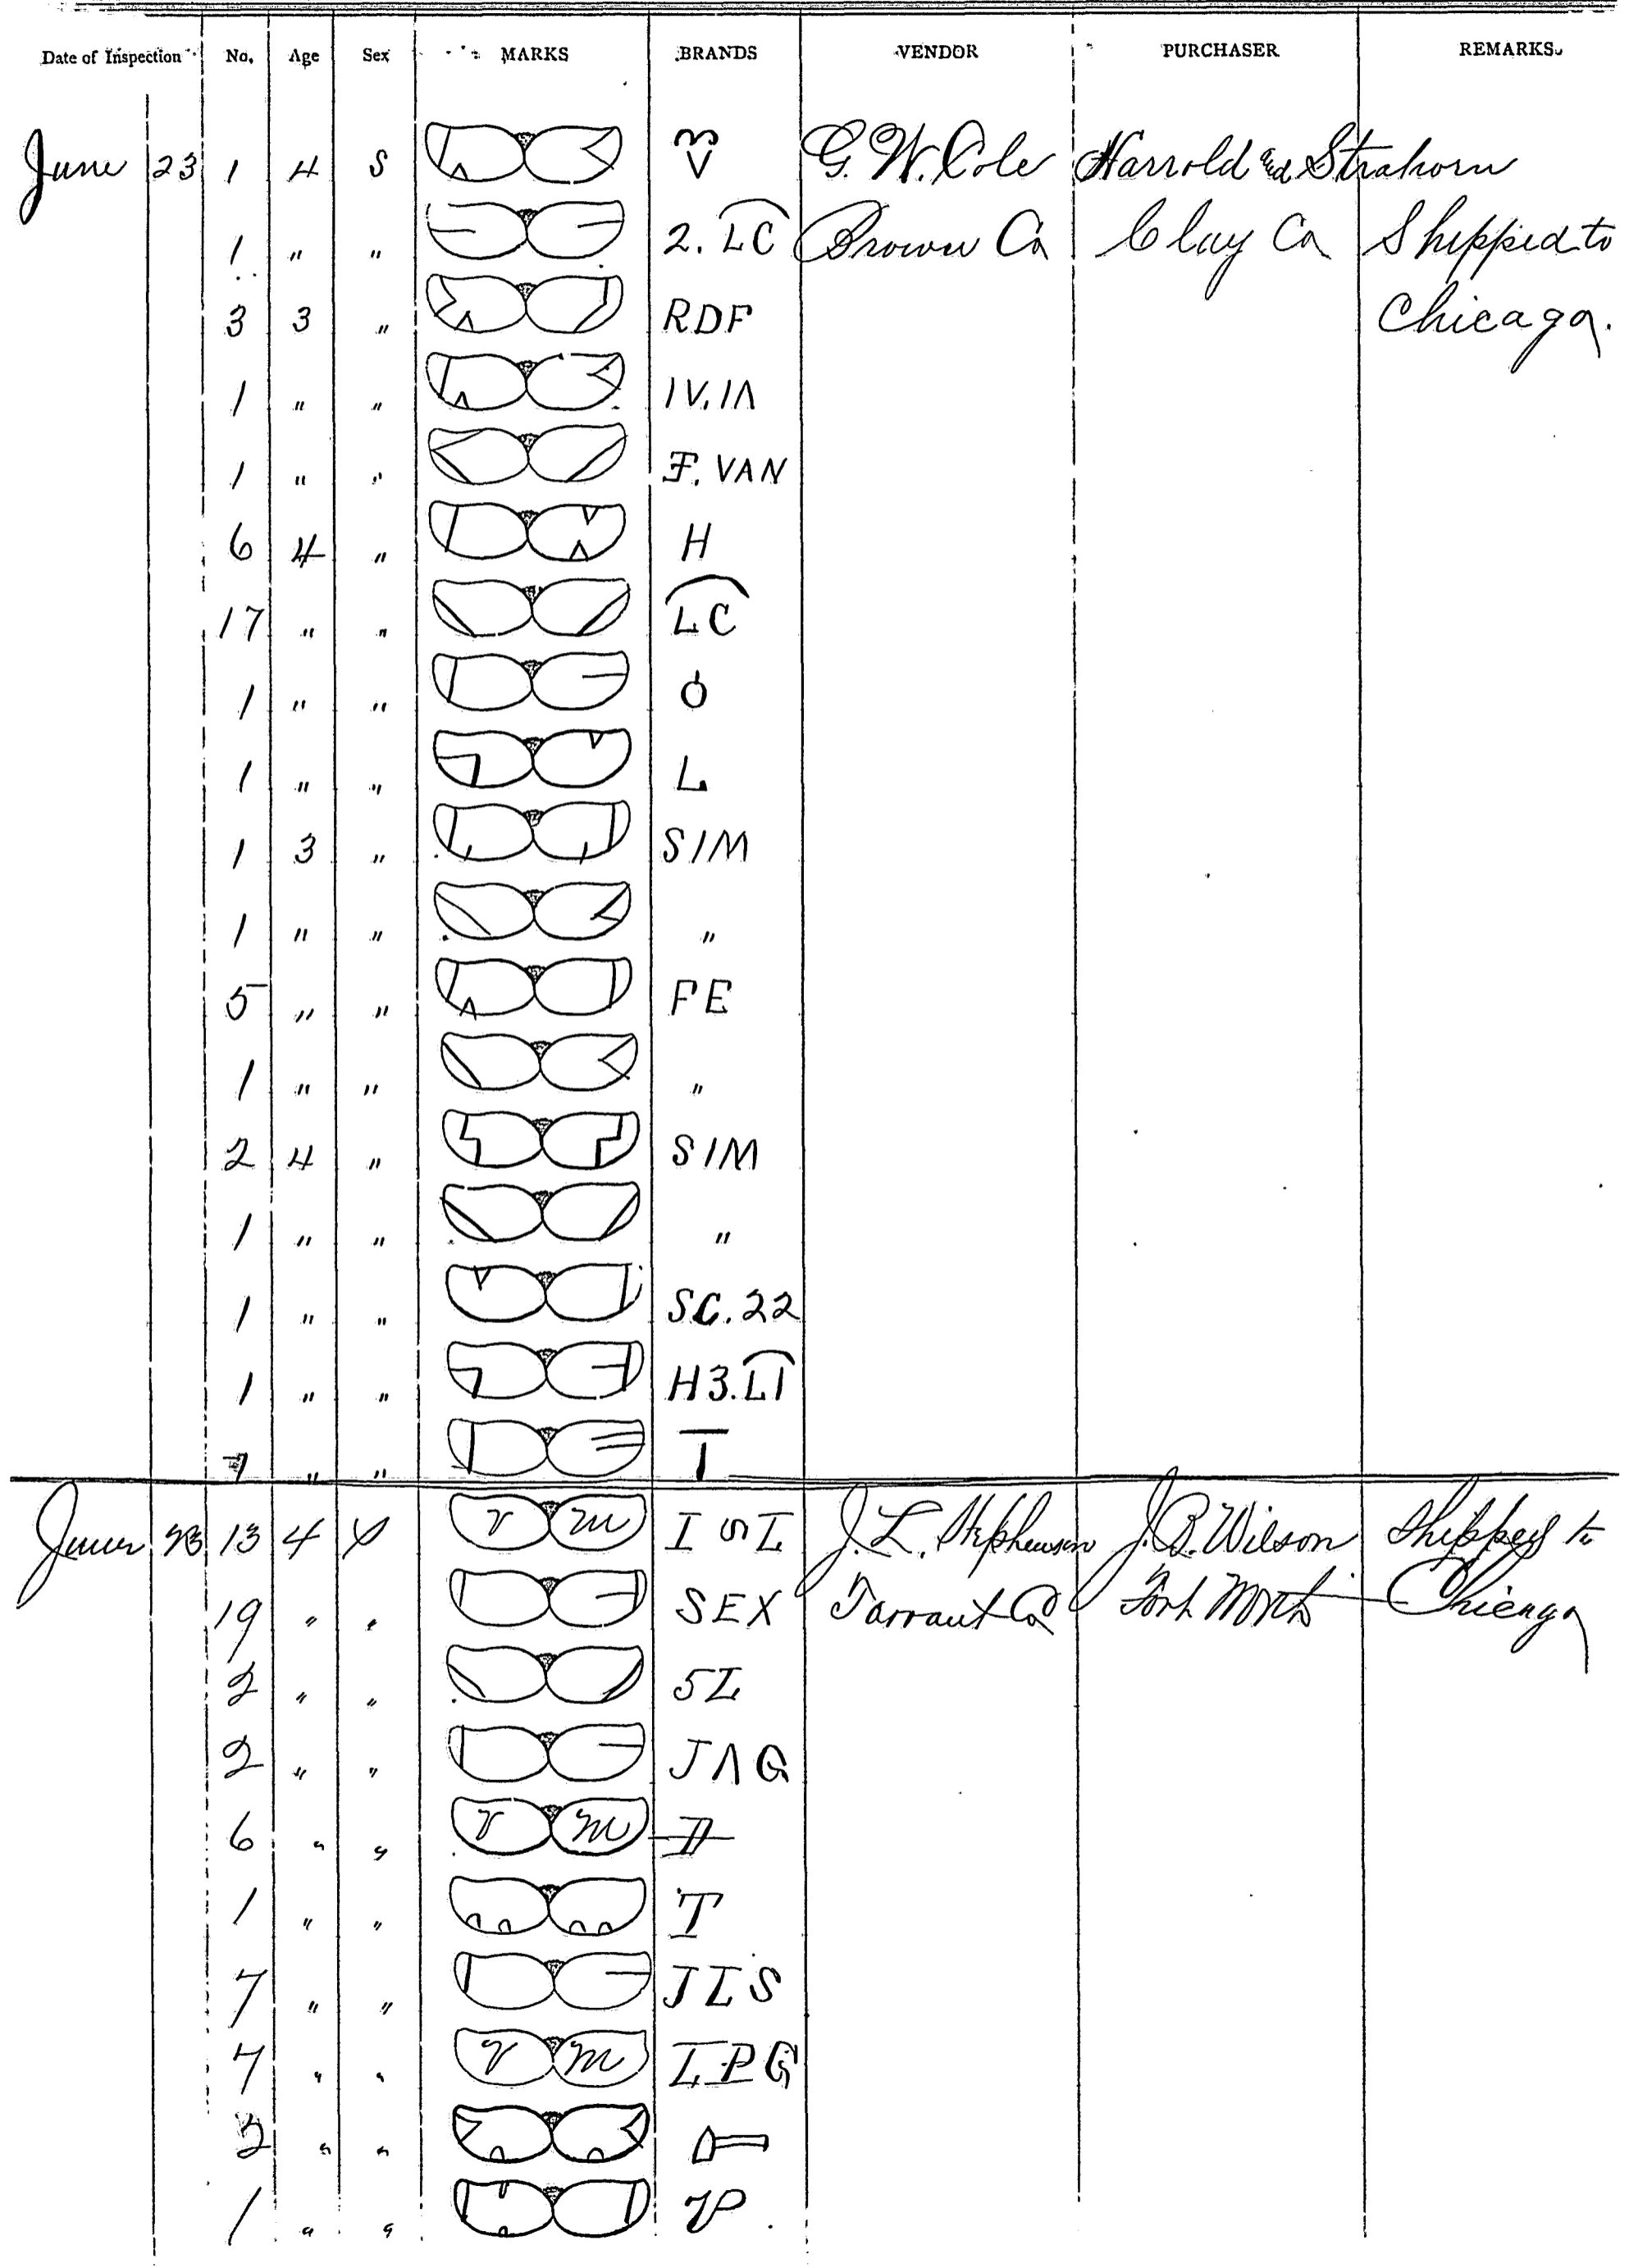 Date of Inspection No. Age Sex MARKS BRANDS VENDOR PURCHASER REMARKS
June 23 1 4 S G. W. Cole Harrold and Strahorn
1 " " 2. LC Brown Co Clay Co Shipped to
3 3 " RDF Chicago.
1 " " IV. IΛ
1 " " F. VAN
6 4 " H
17 " " LC
1 " "
1 " " L
1 3 " SIM
1 " " "
5 " " FE
1 " " "
2 4 " SIM
1 " " "
1 " " SC. 22
1 " " H3. LI
" " T
June 23 13 4 r m I S L J. L. Stephenson J. B. Wilson Shipped to
19 " " SEX Tarrant Co Fort Worth Chicago
2 " " 5L
2 " " JΛG
6 " " r m
1 " " T
7 " " JLS
7 " " r m LPG
" "
1 " "